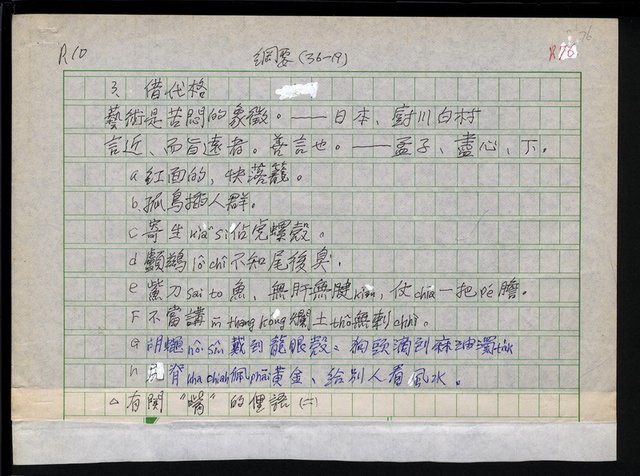 R10
綱要(36-19)
R76
76
3、借代格
藝術是苦悶的象徵。——日本、廚川白村
言近、而旨遠者。善言也。——孟子、盡心、下。
a 紅面的,快落籠。
b、孤鳥插人群。
c 寄生 kiaⁿ si 佔虎螺殼。
d 鸕鶿 lô chî 不知尾後臭.
e 鱟刀 sai to 魚、無肝無腱 kiān,仗 chia 一把 pé 膽。
F 不當講 m thang kóng 爛土 thô 無刺 chhì。
G 胡蠅 hô sîn 戴到龍眼殼。狗頭滴到麻油濁 tak
h 脊 kha chiah 佩 phāi 黃金、給別人看風水。
△ 有關“嘴”的俚語(二)